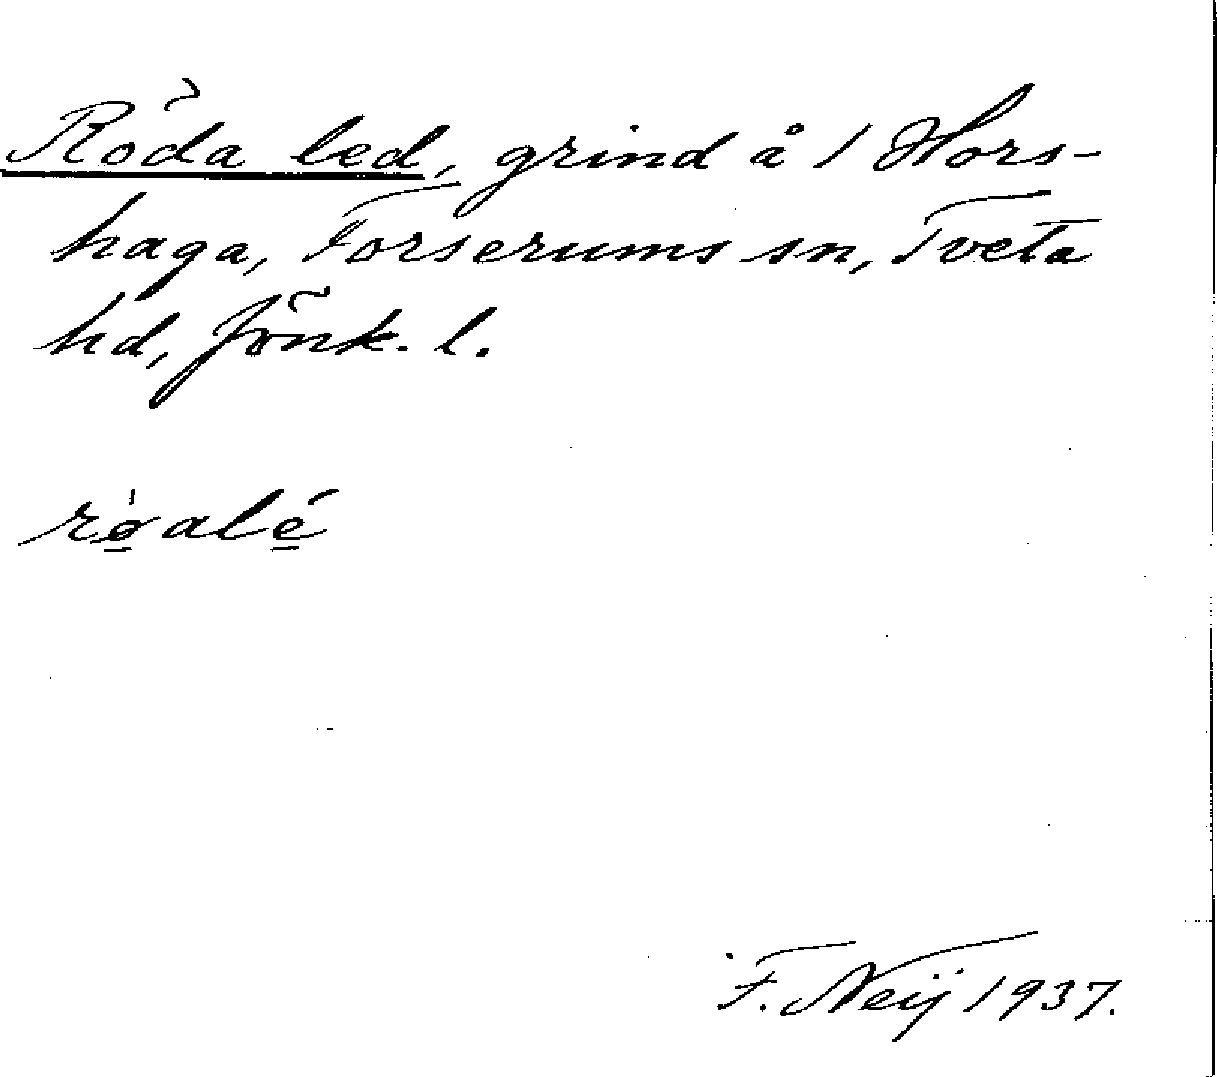 Röda led, grind å 1 Hors-
haga, Forserums sn, Tveta
hd, Jönk. l.
rø̱̀alé̱
F. Neij 1937.